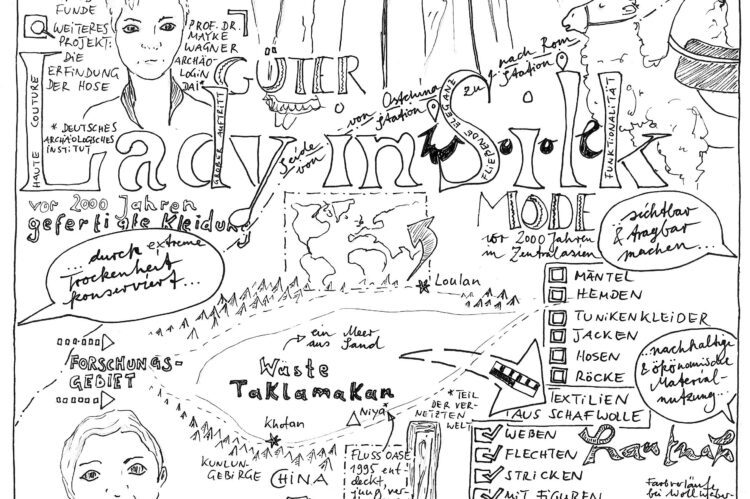 FUNDE
WEITERES
PROJEKT:
DIE
ERFINDUNG
DER HOSE
PROF. DR.
MAYKE
WAGNER
ARCHÄO-
LOGIN
DAI*
* DEUTSCHES
ARCHÄOLOGISCHES
INSTITUT
GÜTER
HAUTE COUTURE
GROßER AUFTRITT
Lady in Silk
Seide von
von Ostchina
Station
FLIEßENDE ELEGANZ
zu
nach Rom
Station
FUNKTIONALITÄT
vor 2000 Jahren
gefertigte Kleidung
MODE
vor 2000 Jahren
in Zentralasien
...sichtbar
& tragbar
machen...
...durch extreme
Trockenheit
konserviert...
Loulan
ein Meer
aus Sand
Wüste
Taklamakan
FORSCHUNGS-
GEBIET
MÄNTEL
HEMDEN
TUNIKENKLEIDER
JACKEN
HOSEN
RÖCKE
TEXTILIEN
AUS SCHAFWOLLE
...nachhaltige
& ökonomische
Material-
nutzung...
Khotan
Niya*
* TEIL
DER VER-
NETZTEN
WELT
KUNLUN-
GEBIRGE
CHINA
FLUSSOASE
1995 ent-
deckt,
jung ver-
WEBEN
FLECHTEN
STRICKEN
MIT FIGUREN
Farbverläufe
bei Wollweber-